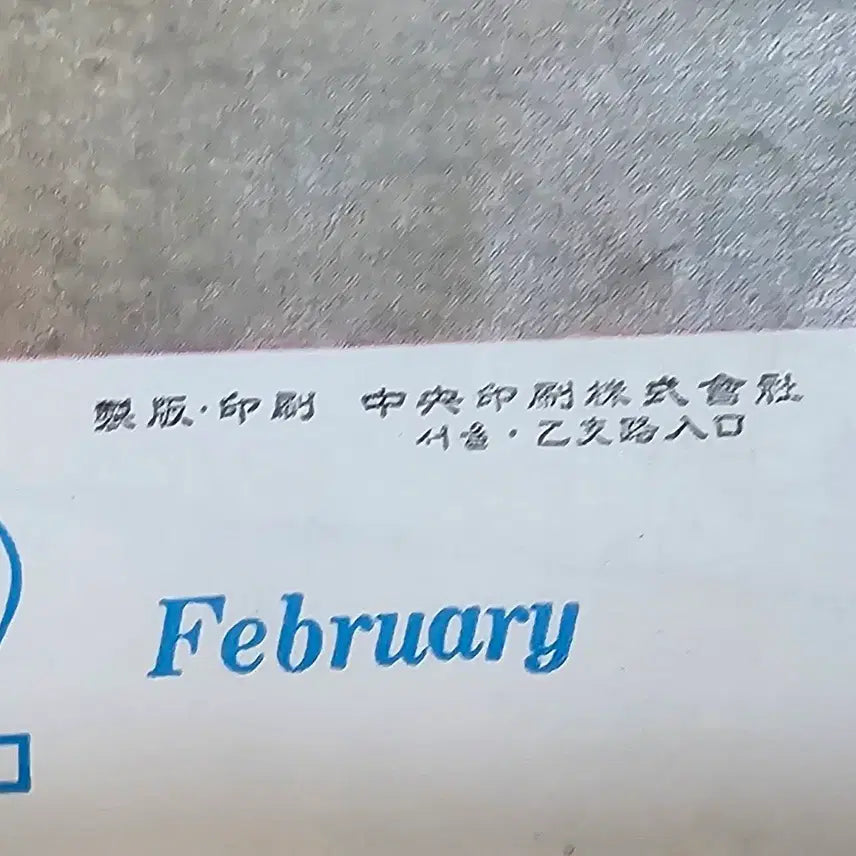 製版·印刷 中央印刷株式會社
서울·乙支路入口
February